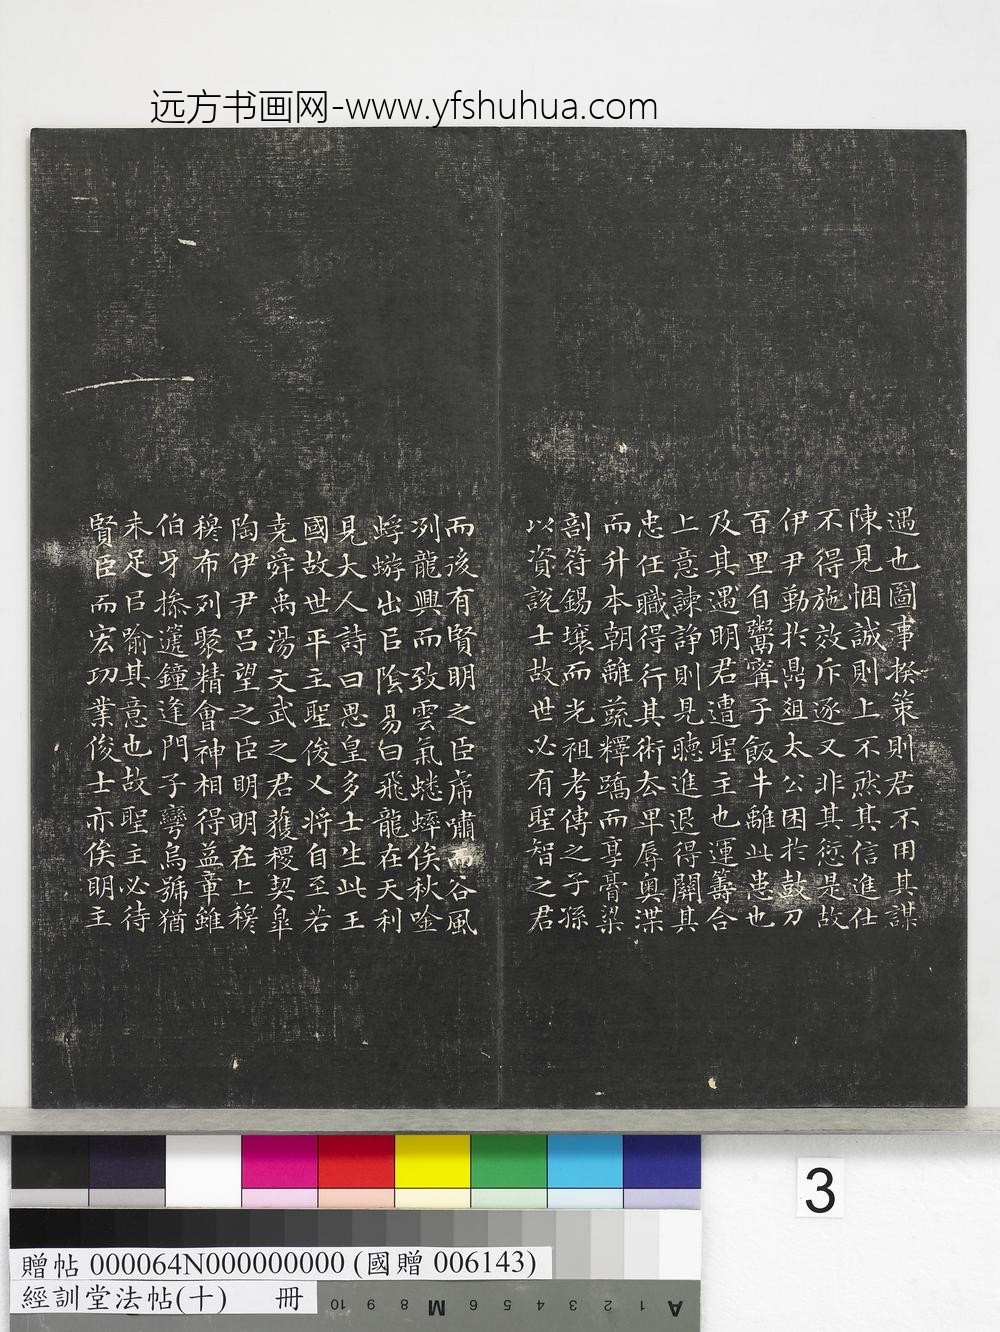 远方书画网-www.yfshuhua.com
遇也圖事揆策則君不用其謀
陳見悃誠則上不然其信進仕
不得施效斥逐又非其愆是故
伊尹勤於鼎俎太公困於鼓刀
百里自鬻甯子飯牛離此患也
及其遇明君遭聖主也運籌合
上意諫諍則見聽進退得關其
忠任職得行其術去卑辱奧渫
而升本朝離蔬釋蹻而享膏粱
剖符錫壤而光祖考傳之子孫
以資說士故世必有聖智之君
而後有賢明之臣虎嘯而谷風
冽龍興而致雲氣蟋蟀俟秋唫
蜉蝣出㠯陰易曰飛龍在天利
見大人詩曰思皇多士生此王
國故世平主聖俊乂將自至若
堯舜禹湯文武之君獲稷契皋
陶伊尹呂望之臣明明在上穆
穆布列聚精會神相得益章雖
伯牙操遞鐘逢門子彎烏號猶
未足㠯喻其意也故聖主必待
賢臣而宏功業俊士亦俟明主
3
贈帖 000064N000000000 (國贈 006143)
經訓堂法帖(十) 冊
10 9 8 M 6 5 4 3 2 1 A